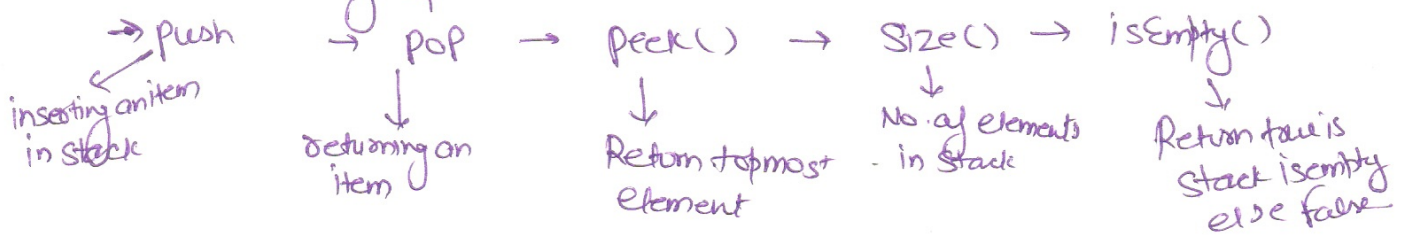 → push → pop → peek() → Size() → isEmpty()
inserting an item
in stack
returning an
item
Return topmost
element
No. of elements
in Stack
Return true is
Stack is empty
else false